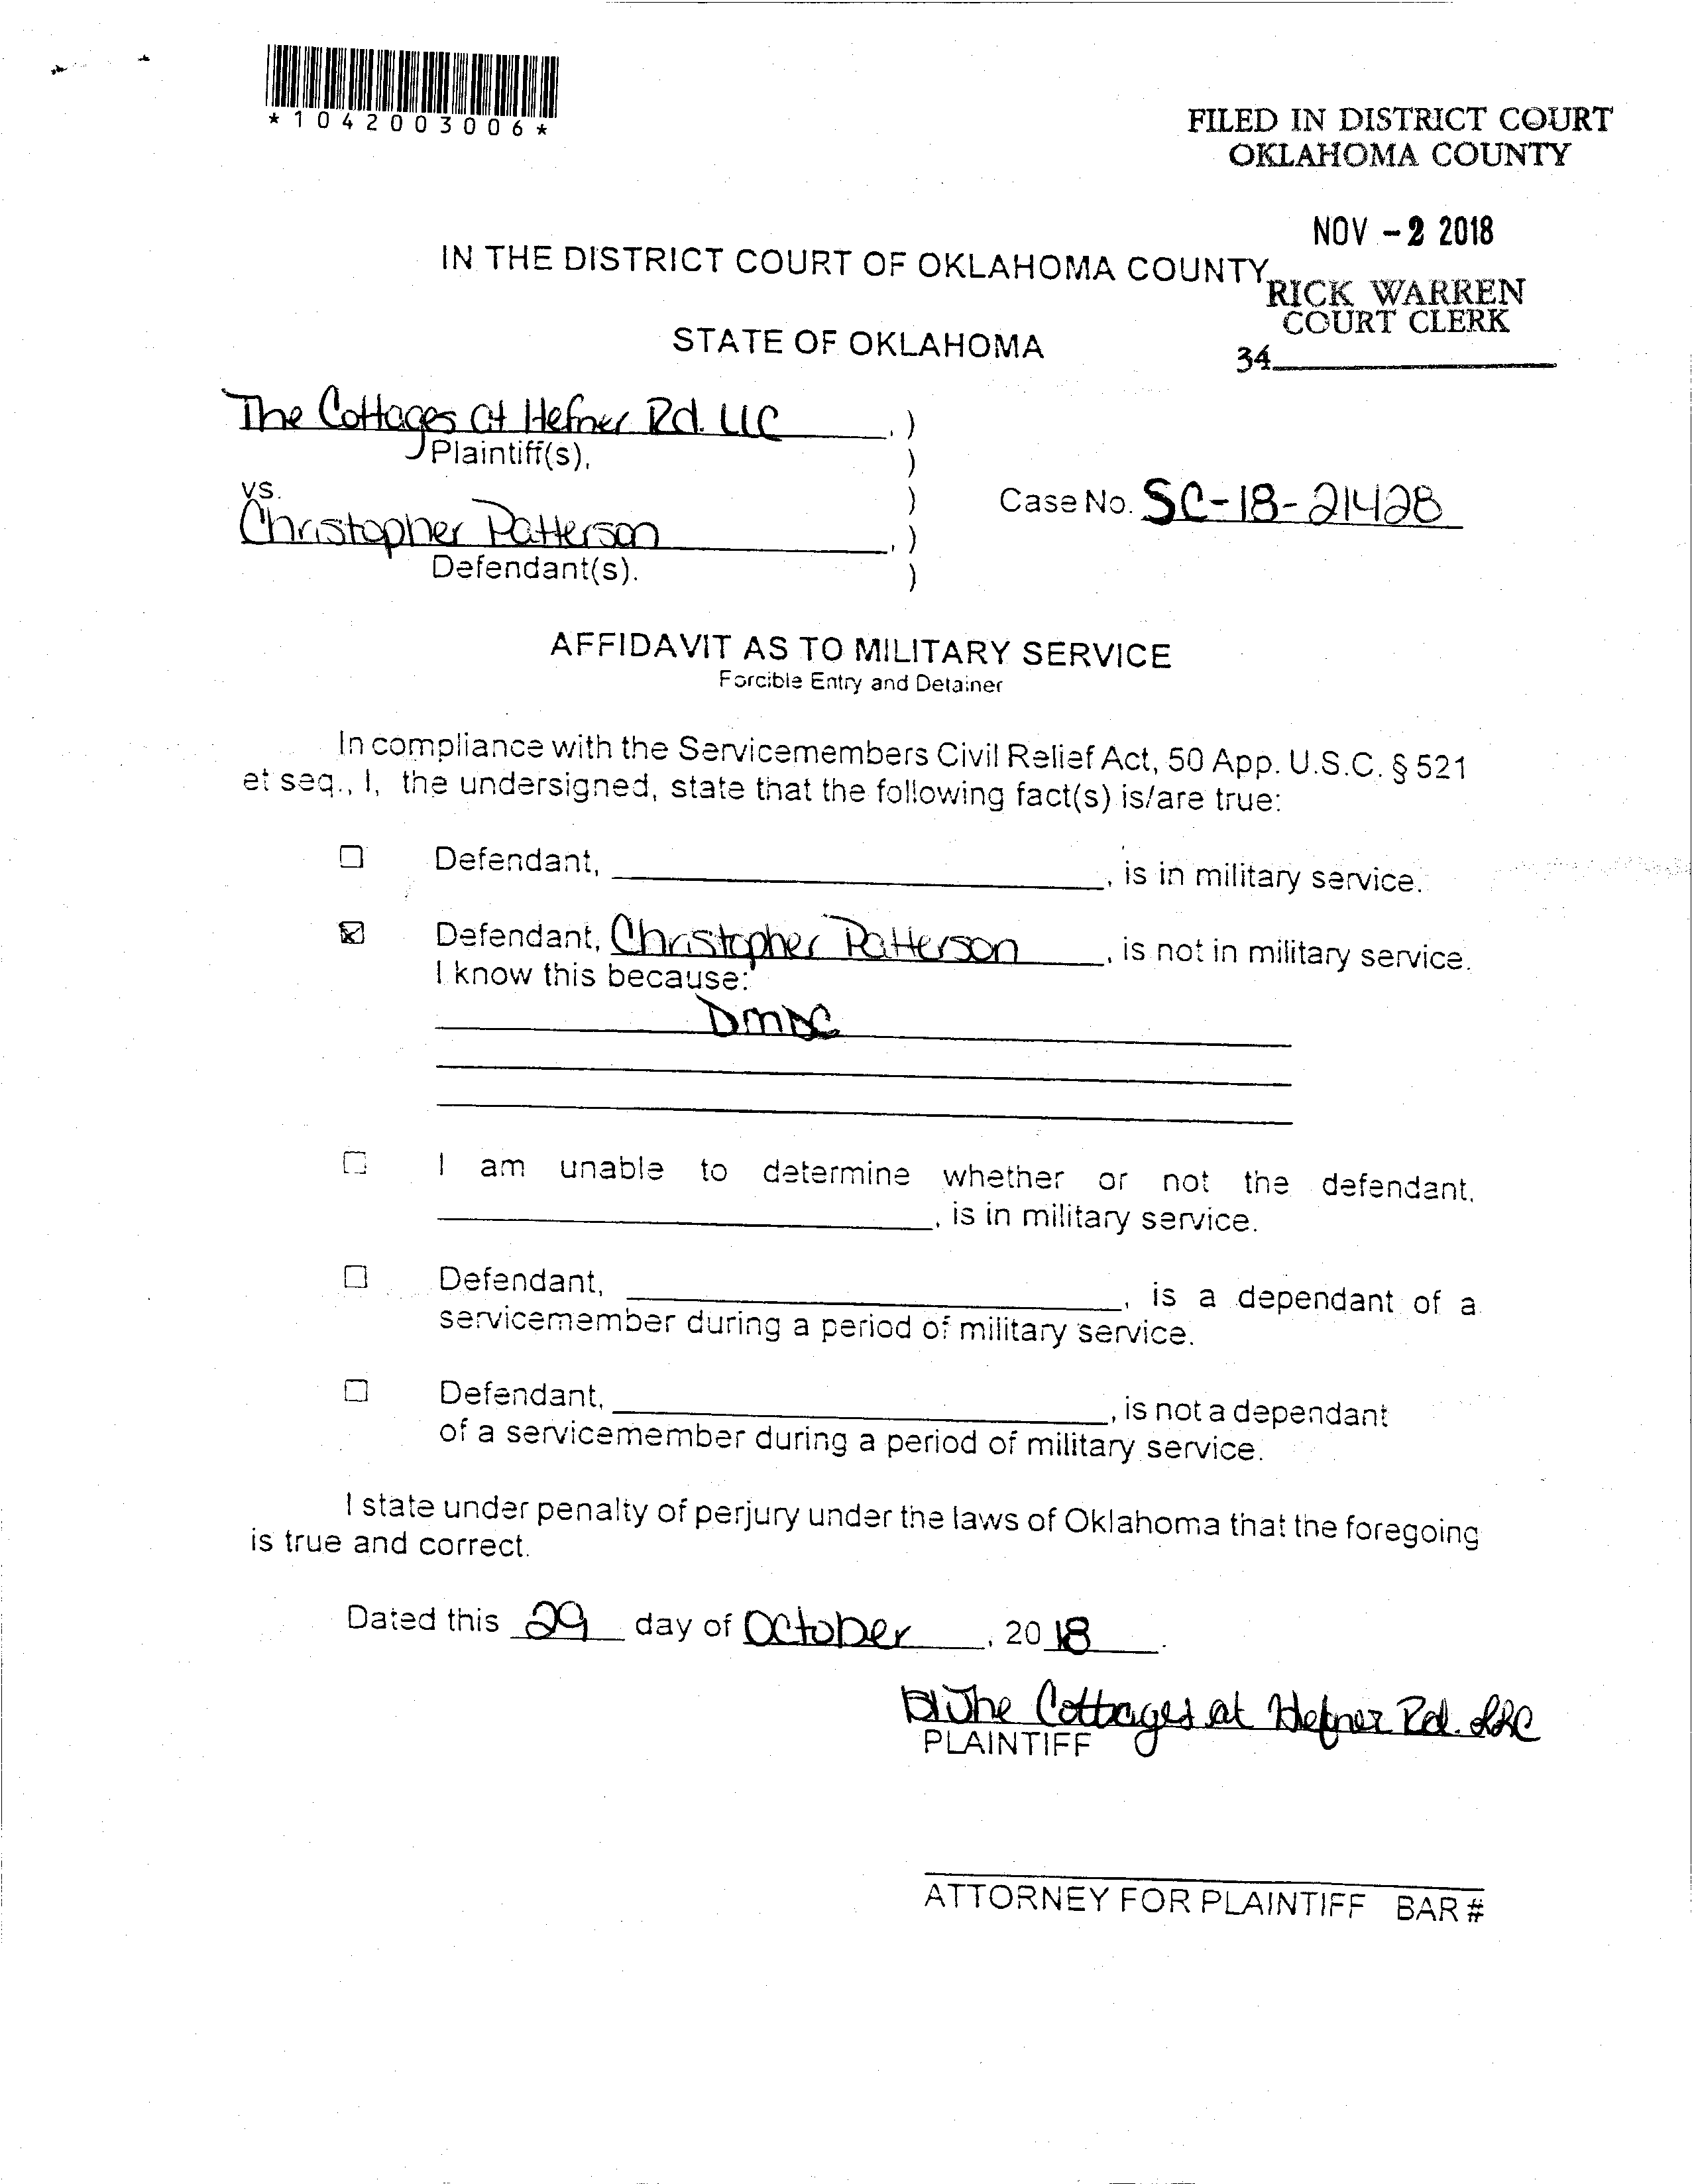 *1042003006*
FILED IN DISTRICT COURT
OKLAHOMA COUNTY
NOV -2 2018
IN THE DISTRICT COURT OF OKLAHOMA COUNTY
RICK WARREN
COURT CLERK
STATE OF OKLAHOMA
34
The Cottages at Hefner Rd. LLC , )
Plaintiff(s), )
vs. ) Case No. SC-18-21428
Christopher Patterson , )
Defendant(s). )
AFFIDAVIT AS TO MILITARY SERVICE
Forcible Entry and Detainer
In compliance with the Servicemembers Civil Relief Act, 50 App. U.S.C. § 521
et seq., I, the undersigned, state that the following fact(s) is/are true:
☐ Defendant, , is in military service.
☒ Defendant, Christopher Patterson , is not in military service.
I know this because:
DMDC
☐ I am unable to determine whether or not the defendant,
, is in military service.
☐ Defendant, , is a dependant of a
servicemember during a period of military service.
☐ Defendant, , is not a dependant
of a servicemember during a period of military service.
I state under penalty of perjury under the laws of Oklahoma that the foregoing
is true and correct.
Dated this 29 day of October , 20 18 .
The Cottages at Hefner Rd. LLC
PLAINTIFF
ATTORNEY FOR PLAINTIFF BAR #